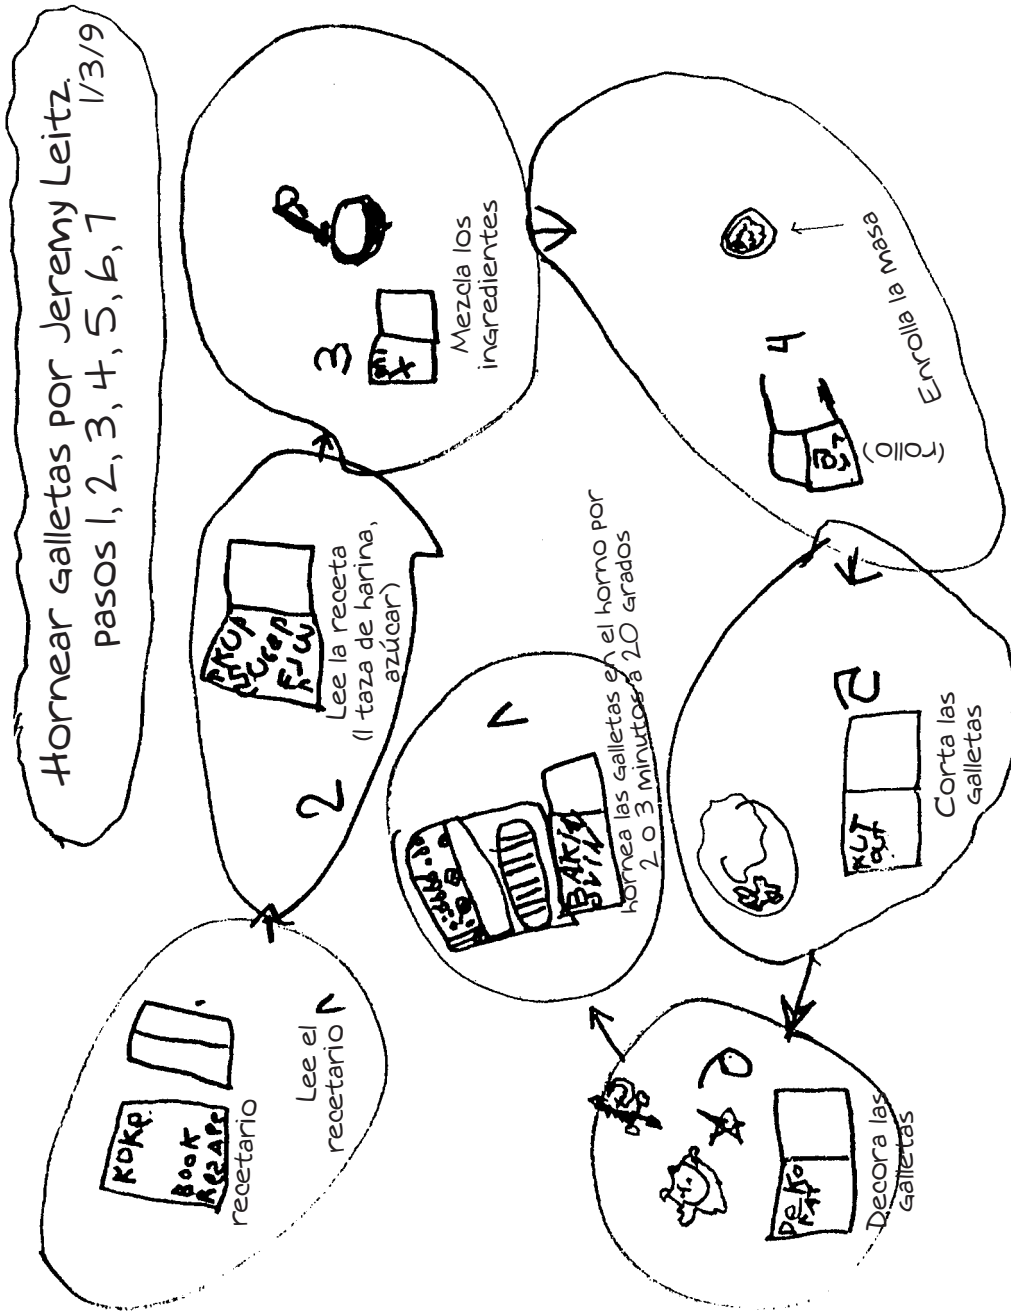 Hornear Galletas por Jeremy Leitz
Pasos 1, 2, 3, 4, 5, 6, 7 1/3/9
KOKP
BOOK
recetario
Lee el
recetario
2
Lee la receta
(1 taza de harina,
azúcar)
3
Mezcla los
ingredientes
4
(rollo)
Enrolla la masa
5
KUT
out
Corta las
Galletas
6
Decora las
Galletas
7
hornea las Galletas en el horno por
2 o 3 minutos a 20 Grados